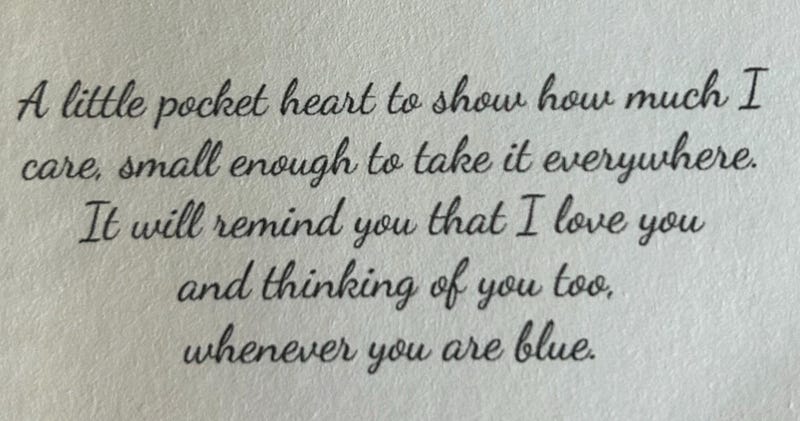 A little pocket heart to show how much I
care, small enough to take it everywhere.
It will remind you that I love you
and thinking of you too,
whenever you are blue.